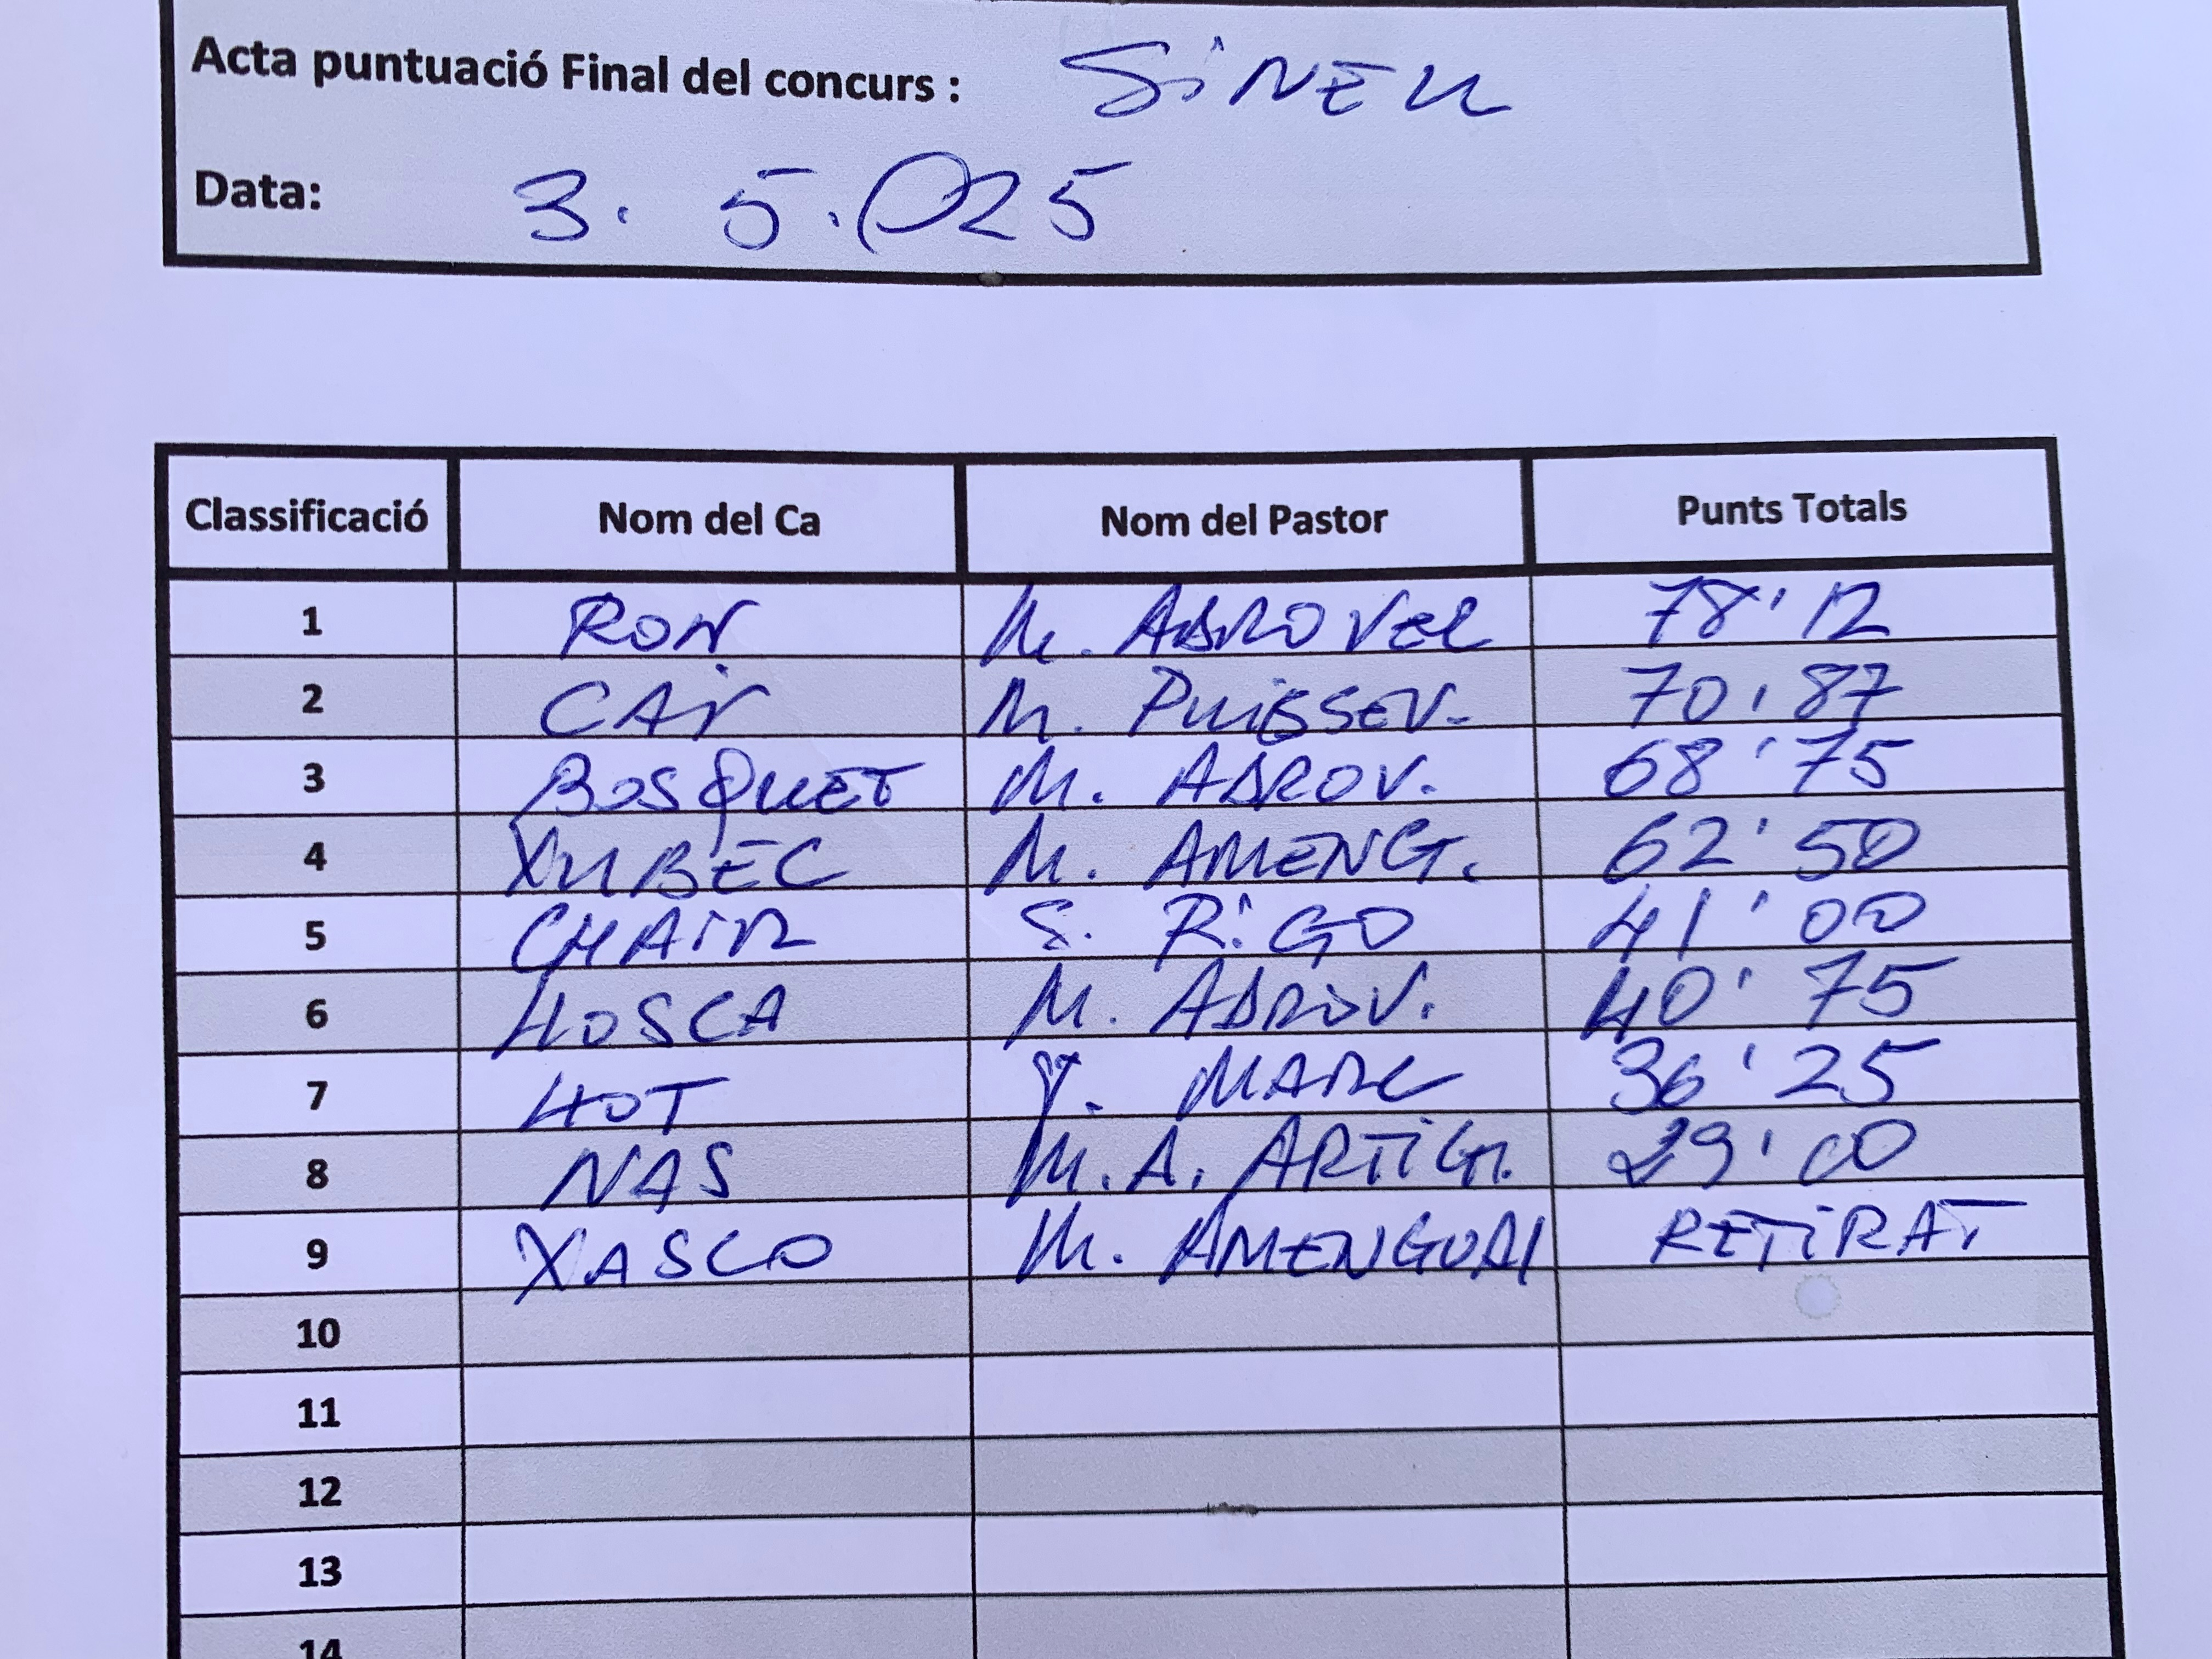 Acta puntuació Final del concurs : SiNEU
Data: 3. 5.025
Classificació Nom del Ca Nom del Pastor Punts Totals
1 RON M. ADROVER 78'12
2 M. PUiGSERV. 70'87
3 BOSQUET M. ADROV. 68'75
4 XUBEC M. AMENG. 62'50
5 CHAiR S. RiGO 41'00
6 HOSCA M. ADROV. 40'75
7 HOT MARC 36'25
8 NAS M.A. ARTiG. 29'00
9 XASCO M. AMENGUAl RETiRAT
10
11
12
13
14